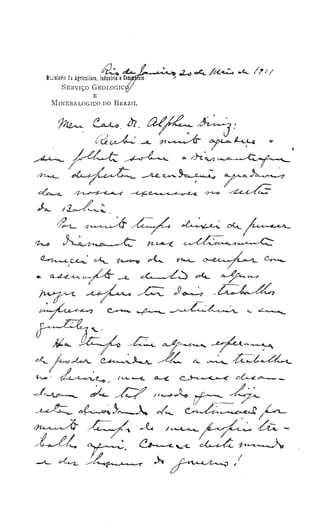 Rio de Janeiro, 20 de Maio de 1911
Ministerio da Agricultura, Industria e Commercio
SERVIÇO GEOLOGICO
E
MINERALOGICO DO BRAZIL
Meu Caro Dr. Alpheu Diniz:
Recebi e muito agradeço o
seu folheto sobre o Diamante que
me despertou recordações agradaveis
das nossas excursões no sertão
da Bahia.
Por muito tempo deixei de pensar
no Diamante mas ultimamente
comecei de novo de me occupar com
o assumpto e dentro de alguns
mezes espero ter dois trabalhos
impressos com que retribuir a sua
gentileza.
Ha tempo tive alguma esperança
de poder convidar-lhe a vir trabalhar
no Serviço, mas as cousas
de tal modo que hoje
estou duvidando da continuação por
muito tempo do meu proprio tra-
balho aqui. Cousas deste mundo
e dos homens do governo!